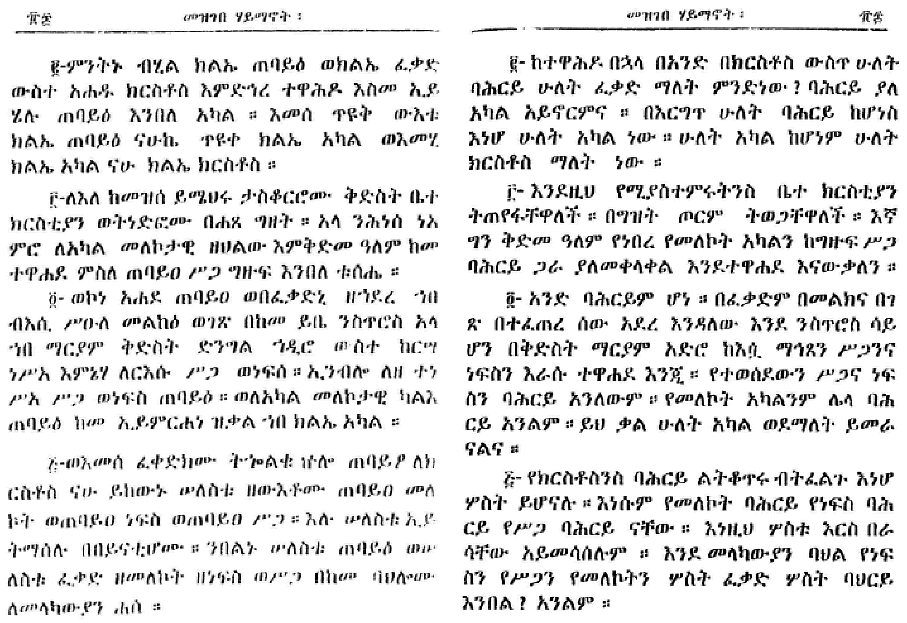 ፹፰ መዝገበ ሃይማኖት ፡
፪-ምንትኑ ብሂል ክልኤ ጠባይዕ ወክልኤ ፈቃድ
ውስተ አሐዱ ክርስቶስ እምድኅረ ተዋሕዶ እስመ ኢይ
ሄሉ ጠባይዕ እንበለ አካል ። እመሰ ጥዩቅ ውእቱ
ክልኤ ጠባይዕ ናሁኬ ጥዩቀ ክልኤ አካል ወእመሂ
ክልኤ አካል ናሁ ክልኤ ክርስቶስ ።
፫-ለእለ ከመዝሰ ይሜህሩ ታስቆርሮሙ ቅድስት ቤተ
ክርስቲያን ወትነድፎሙ በሐጸ ግዘት ። አላ ንሕነሰ ነአ
ምሮ ለአካል መለኮታዊ ዘህልው እምቅድመ ዓለም ከመ
ተዋሐደ ምስለ ጠባይዐ ሥጋ ግዙፍ እንበለ ቱሰሔ ።
፬- ወኮነ አሐደ ጠባይዐ ወበፈቃድኒ ዘኀደረ ኀበ
ብእሲ ሥዑለ መልክዕ ወገጽ በከመ ይቤ ንስጥሮስ አላ
ኀበ ማርያም ቅድስት ድንግል ኀዲሮ ውስተ ከርሣ
ነሥአ እምኔሃ ለርእሱ ሥጋ ወነፍሰ ። ኢንብሎ ለዘ ተነ
ሥአ ሥጋ ወነፍስ ጠባይዕ ። ወለአካል መለኮታዊ ካልእ
ጠባይዕ ከመ ኢይምርሐነ ዝቃል ኀበ ክልኤ አካል ።
፭-ወእመሰ ፈቀድክሙ ትኈልቁ ኵሎ ጠባይዖ ለክ
ርስቶስ ናሁ ይከውኑ ሠለስቱ ዘውእቶሙ ጠባይዐ መለ
ኮት ወጠባይዐ ነፍስ ወጠባይዐ ሥጋ ። እሉ ሠለስቱ ኢይ
ትማሰሉ በበይናቲሆሙ ። ንበልኑ ሠለስቱ ጠባይዕ ወሠ
ለስቱ ፈቃድ ዘመለኮት ዘነፍስ ወሥጋ በከመ ባህሎሙ
ለመላካውያን ሐሰ ።
መዝገበ ሃይማኖት ፡ ፹፰
፪- ከተዋሕዶ በኋላ በአንድ በክርስቶስ ውስጥ ሁለት
ባሕርይ ሁለት ፈቃድ ማለት ምንድነው ? ባሕርይ ያለ
አካል አይኖርምና ። በእርግጥ ሁለት ባሕርይ ከሆነስ
እነሆ ሁለት አካል ነው ። ሁለት አካል ከሆነም ሁለት
ክርስቶስ ማለት ነው ።
፫- እንደዚህ የሚያስተምሩትንስ ቤተ ክርስቲያን
ትጠየፋቸዋለች ። በግዝት ጦርም ትወጋቸዋለች ። እኛ
ግን ቅድመ ዓለም የነበረ የመለኮት አካልን ከግዙፍ ሥጋ
ባሕርይ ጋራ ያለመቀላቀል እንደተዋሐደ እናውቃለን ።
፬- አንድ ባሕርይም ሆነ ። በፈቃድም በመልክና በገ
ጽ በተፈጠረ ሰው አደረ እንዳለው እንደ ንስጥሮስ ሳይ
ሆን በቅድስት ማርያም አድሮ ከእሷ ማኅጸን ሥጋንና
ነፍስን እራሱ ተዋሐደ እንጂ ። የተወሰደውን ሥጋና ነፍ
ስን ባሕርይ አንለውም ። የመለኮት አካልንም ሌላ ባሕ
ርይ አንልም ። ይህ ቃል ሁለት አካል ወደማለት ይመራ
ናልና ።
፭- የክርስቶስንስ ባሕርይ ልትቆጥሩ ብትፈልጉ እነሆ
ሦስት ይሆናሉ ። እነሱም የመለኮት ባሕርይ የነፍስ ባሕ
ርይ የሥጋ ባሕርይ ናቸው ። እነዚህ ሦስቱ እርስ በራ
ሳቸው አይመሳሰሉም ። እንደ መላካውያን ባህል የነፍ
ስን የሥጋን የመለኮትን ሦስት ፈቃድ ሦስት ባህርይ
እንበል ? አንልም ።